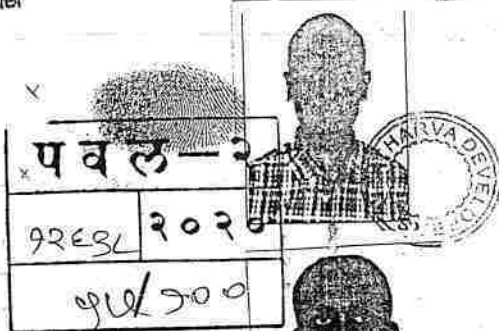 प व ल — २
१२६३८ २०२०
५५/१००
HARVA DEVELO